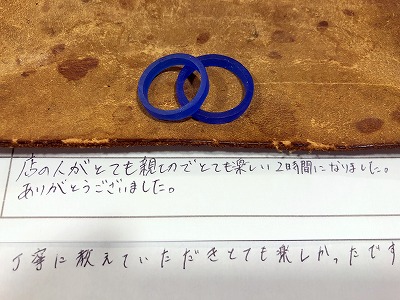 店の人がとても親しのでとても楽しい2時間になりました。
ありがとうございました。
丁寧に教えていただきとても楽しかったです